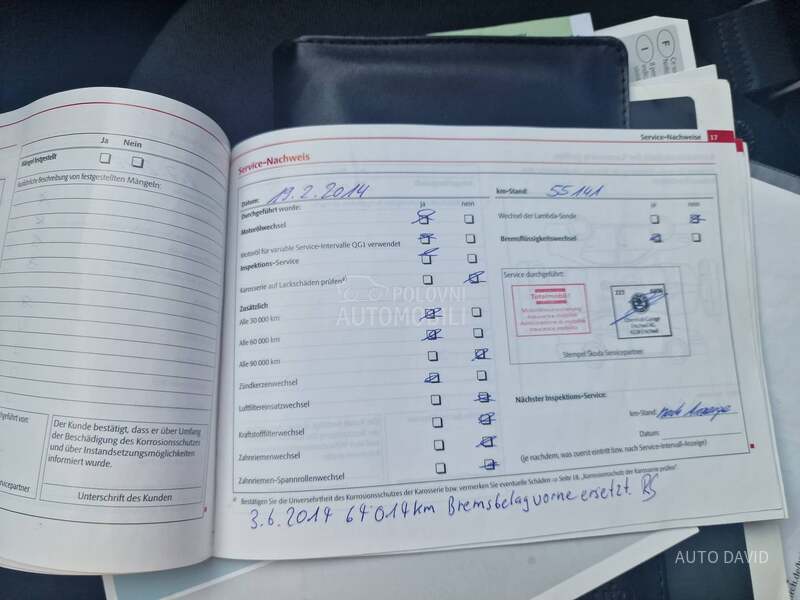 Service-Nachweise 17
Ja Nein
Mängel festgestellt
Ausführliche Beschreibung von festgestellten Mängeln:
Der Kunde bestätigt, dass er über Umfang
der Beschädigung des Korrosionsschutzes
und über Instandsetzungsmöglichkeiten
informiert wurde.
Unterschrift des Kunden
Service-Nachweis
Datum: 19.2.2014
km-Stand: 55141
Durchgeführt wurde: ja nein
Motorölwechsel
Motoröl für variable Service-Intervalle QG1 verwendet
Inspektions-Service
Karosserie auf Lackschäden prüfen
Zusätzlich
Alle 30 000 km
Alle 60 000 km
Alle 90 000 km
Zündkerzenwechsel
Luftfiltereinsatzwechsel
Kraftstofffilterwechsel
Zahnriemenwechsel
Zahnriemen-Spannrollenwechsel
ja nein
Wechsel der Lambda-Sonde
Bremsflüssigkeitswechsel
Service durchgeführt:
Totalmobil!
Stempel Škoda Servicepartner
Nächster Inspektions-Service:
km-Stand: nach Anzeige
Datum:
(je nachdem, was zuerst eintritt bzw. nach Service-Intervall-Anzeige)
Bestätigen Sie die Unversehrtheit des Korrosionsschutzes der Karosserie bzw. vermerken Sie eventuelle Schäden ⇒ Seite 18, „Korrosionsschutz der Karosserie prüfen"
3.6.2014 64014km Bremsbelag vorne ersetzt. RS
POLOVNI
AUTOMOBILI
AUTO DAVID